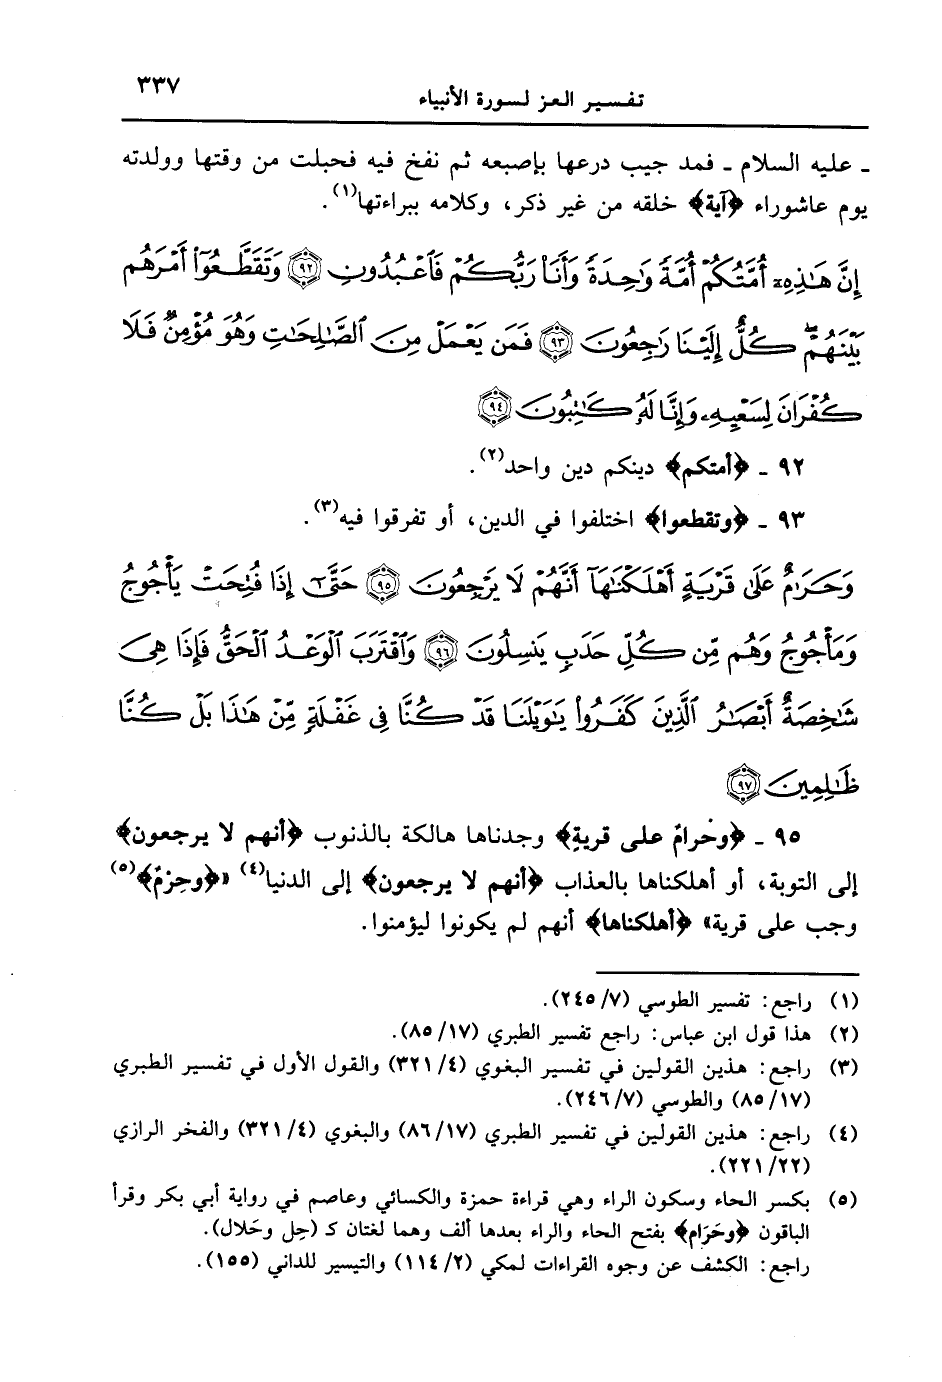 ٣٣٧
تفسير العز لسورة الأنبياء
ـ عليه السلام ـ فمد جيب درعها بإصبعه ثم نفخ فيه فحبلت من وقتها وولدته
يوم عاشوراء ﴿آية﴾ خلقه من غير ذكر، وكلامه ببراءتها(١).
إِنَّ هَٰذِهِۦٓ أُمَّتُكُمْ أُمَّةً وَٰحِدَةً وَأَنَا۠ رَبُّكُمْ فَٱعْبُدُونِ ﴿٩٢﴾ وَتَقَطَّعُوٓا۟ أَمْرَهُم
بَيْنَهُمْ ۖ كُلٌّ إِلَيْنَا رَٰجِعُونَ ﴿٩٣﴾ فَمَن يَعْمَلْ مِنَ ٱلصَّٰلِحَٰتِ وَهُوَ مُؤْمِنٌ فَلَا
كُفْرَانَ لِسَعْيِهِۦ وَإِنَّا لَهُۥ كَٰتِبُونَ ﴿٩٤﴾
٩٢ ـ ﴿أمتكم﴾ دينكم دين واحد(٢).
٩٣ ـ ﴿وتقطعوا﴾ اختلفوا في الدين، أو تفرقوا فيه(٣).
وَحَرَٰمٌ عَلَىٰ قَرْيَةٍ أَهْلَكْنَٰهَآ أَنَّهُمْ لَا يَرْجِعُونَ ﴿٩٥﴾ حَتَّىٰٓ إِذَا فُتِحَتْ يَأْجُوجُ
وَمَأْجُوجُ وَهُم مِّن كُلِّ حَدَبٍ يَنسِلُونَ ﴿٩٦﴾ وَٱقْتَرَبَ ٱلْوَعْدُ ٱلْحَقُّ فَإِذَا هِىَ
شَٰخِصَةٌ أَبْصَٰرُ ٱلَّذِينَ كَفَرُوا۟ يَٰوَيْلَنَا قَدْ كُنَّا فِى غَفْلَةٍ مِّنْ هَٰذَا بَلْ كُنَّا
ظَٰلِمِينَ ﴿٩٧﴾
٩٥ ـ ﴿وحَرامٌ على قريةٍ﴾ وجدناها هالكة بالذنوب ﴿أنهم لا يرجعون﴾
إلى التوبة، أو أهلكناها بالعذاب ﴿أنهم لا يرجعون﴾ إلى الدنيا(٤) «﴿وحِرْمٌ﴾(٥)
وجب على قرية» ﴿أهلكناها﴾ أنهم لم يكونوا ليؤمنوا.
(١) راجع: تفسير الطوسي (٧/ ٢٤٥).
(٢) هذا قول ابن عباس: راجع تفسير الطبري (١٧/ ٨٥).
(٣) راجع: هذين القولين في تفسير البغوي (٤/ ٣٢١) والقول الأول في تفسير الطبري
(١٧/ ٨٥) والطوسي (٧/ ٢٤٦).
(٤) راجع: هذين القولين في تفسير الطبري (١٧/ ٨٦) والبغوي (٤/ ٣٢١) والفخر الرازي
(٢٢/ ٢٢١).
(٥) بكسر الحاء وسكون الراء وهي قراءة حمزة والكسائي وعاصم في رواية أبي بكر وقرأ
الباقون ﴿وحَرَام﴾ بفتح الحاء والراء بعدها ألف وهما لغتان كـ (حِل وحَلال).
راجع: الكشف عن وجوه القراءات لمكي (٢/ ١١٤) والتيسير للداني (١٥٥).